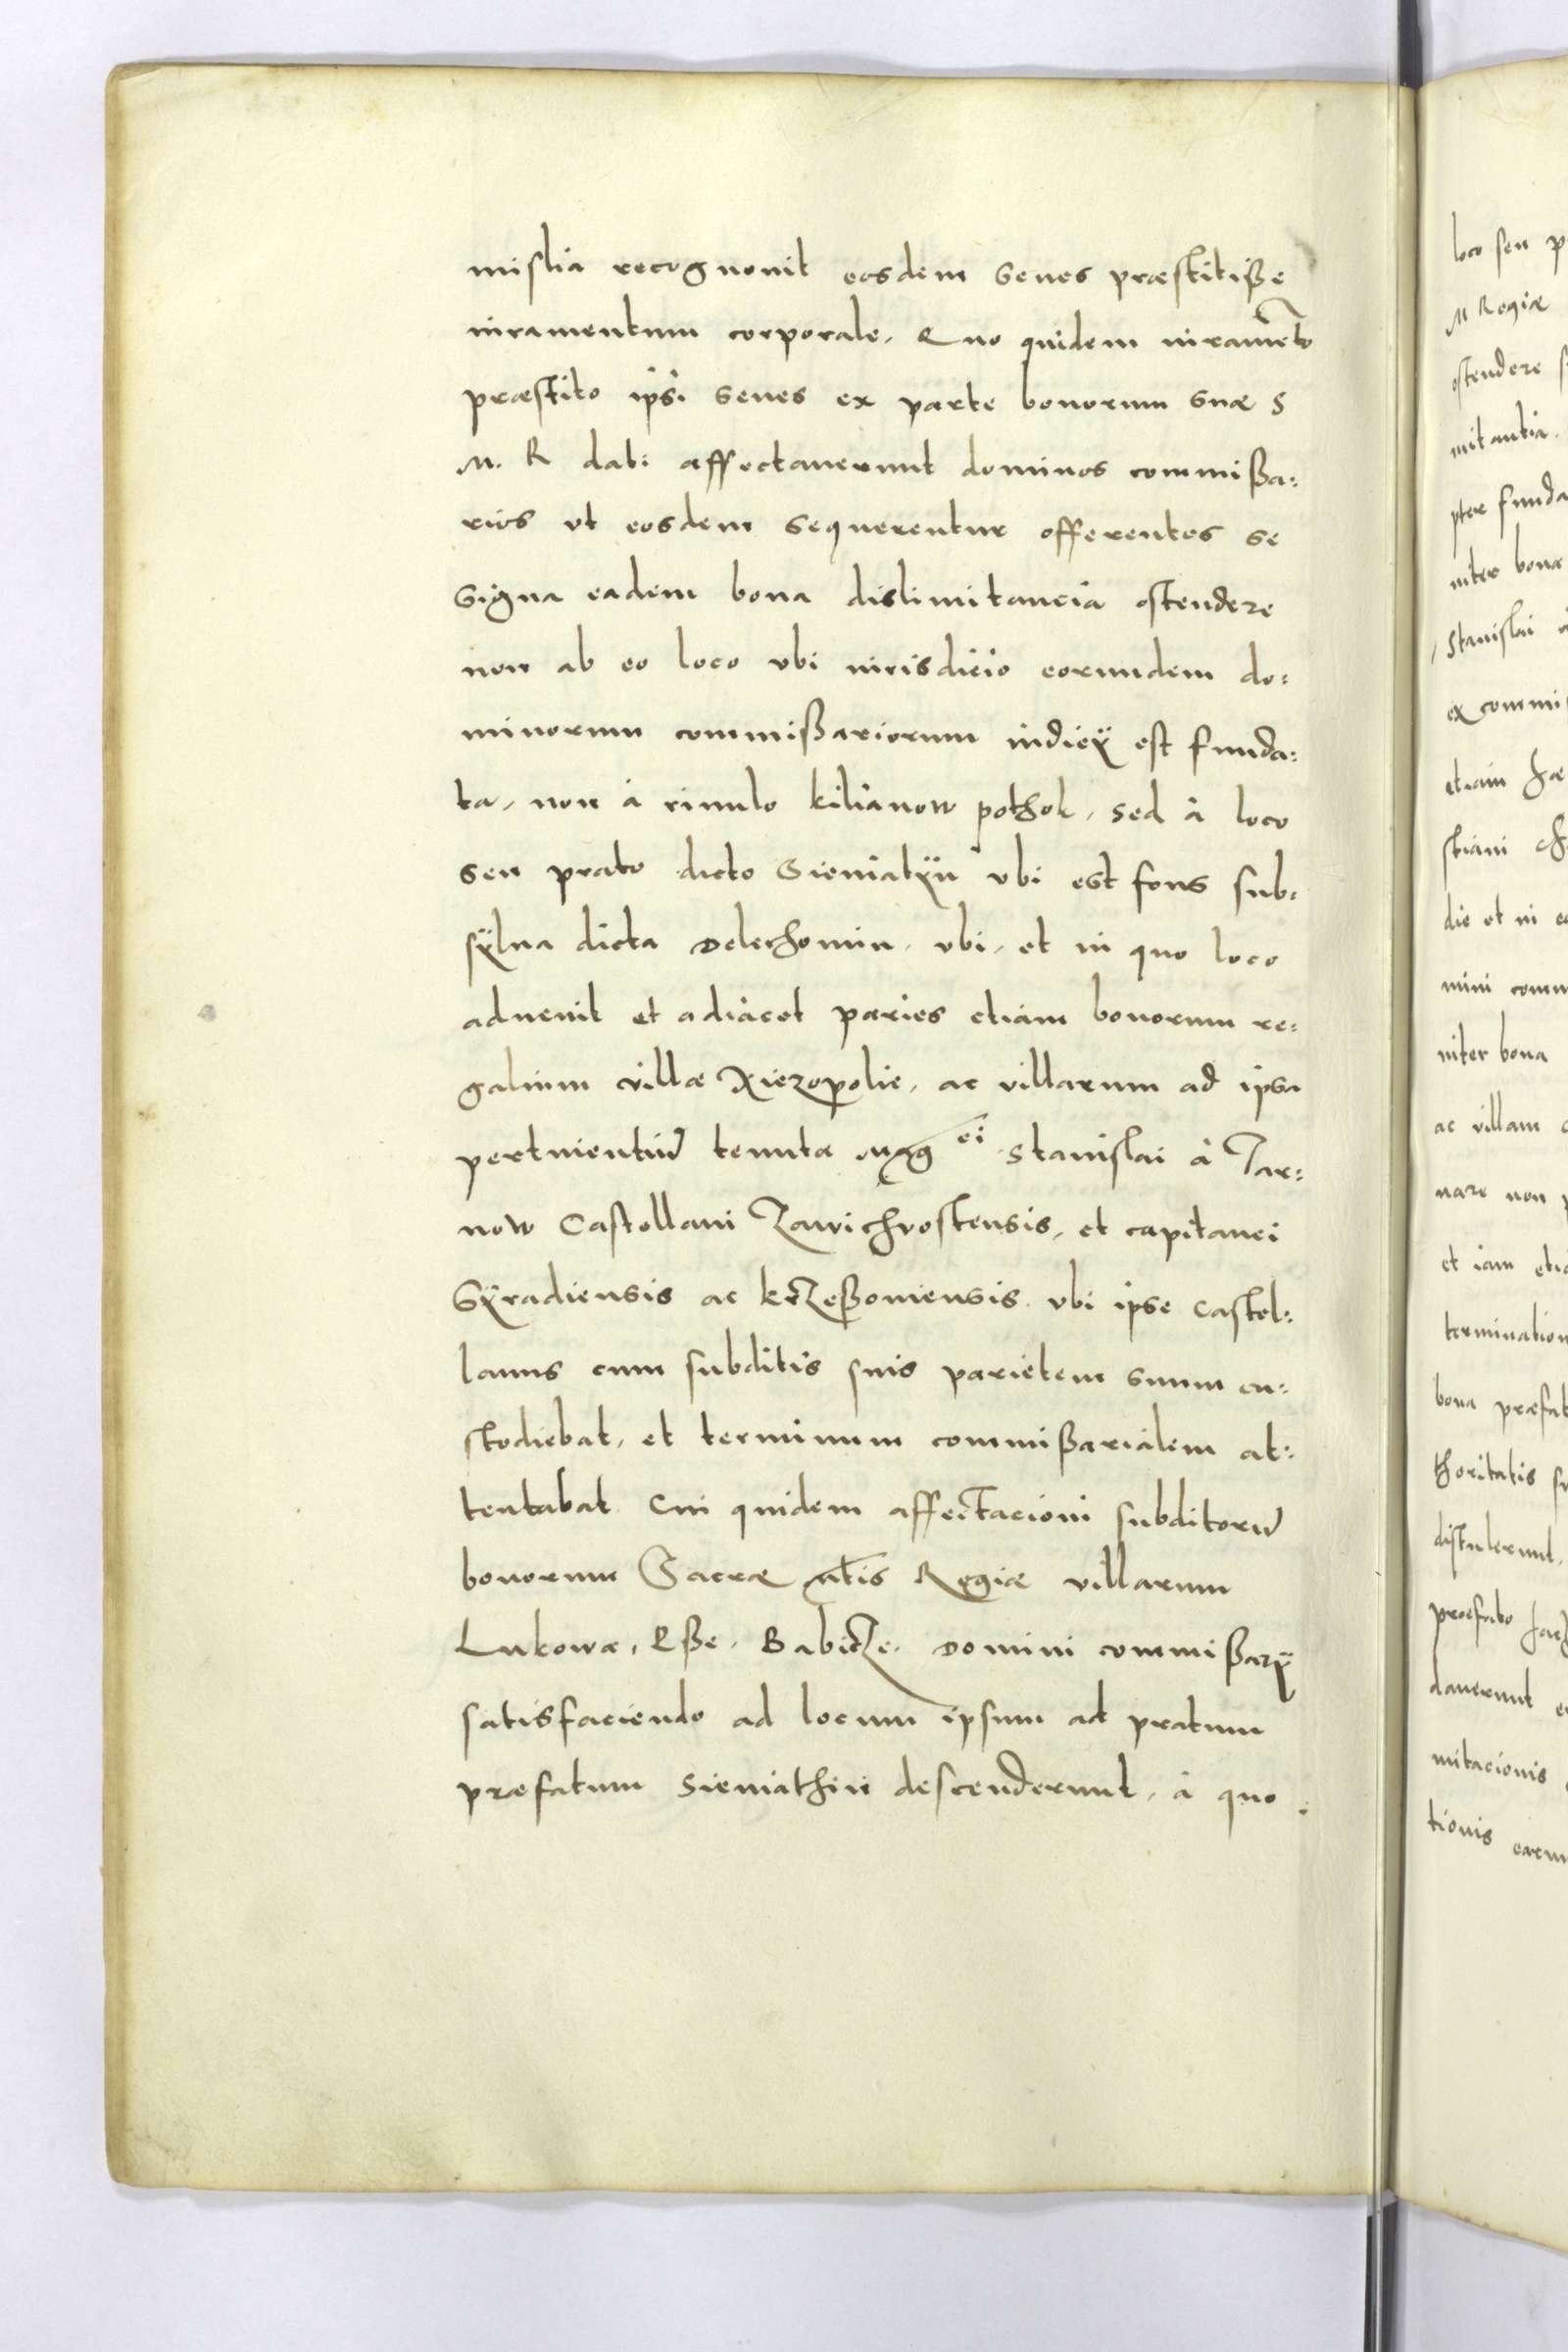 mislia recognovit eosdem senes præstitiße
iuramentum corporale, Quo quidem iuramēto
præstito ipsi senes ex parte bonorum suæ S
M. R dati affectaverunt dominos commißa:
rios ut eosdem sequerentur offerentes se
signa eadem bona dislimitancia ostendere
non ab eo loco ubi iurisdicio eorundem do:
minorum commißariorum indicÿ est funda:
ta, non à rivulo kilianow pothok, sed à loco
seu prato dicto Sieniatÿn ubi est fons sub:
sÿlva dicta Delechomin, ubi, et in quo loco
advenit et adiacet paries etiam bonorum re:
galium villæ Xiezopolie, ac villarum ad ipsa
pertinentiū tenutæ Magci Stanislai à Tar:
now Castellani Zawichrostensis, et capitanei
Sÿradiensis ac krzeßoviensis. ubi ipse castel:
lanus cum subditis suis parietem suum cu:
stodiebat, et terminum commißarialem at:
tentabat. Cui quidem affectacioni subditorū
bonorum Sacræ Mtis Regiæ villarum
Lukowa, Rße, Babicze. Domini commißarÿ
satisfaciendo ad locum ipsum ad pratum
præfatum Sieniathin descenderunt, à quo
loco seu p
M Regiæ
ostendere s
mitantia.
pter funda
inter bona
Stanislai à
ex commi
etiam
stiani
die et in e
mini comm
inter bona
ac villam
nare non p
et iam etia
termination
bona præfat
thoritatis su
distulerunt,
præfato
daverunt e
mitacionis
tionis earun